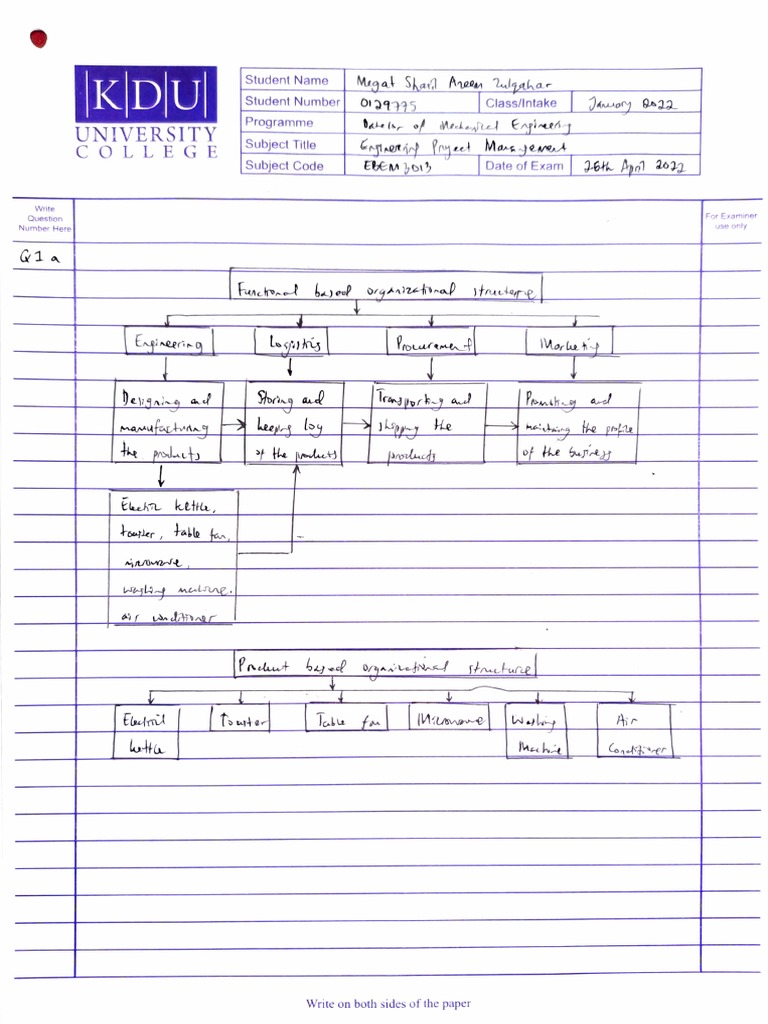 KDU
UNIVERSITY
COLLEGE
Student Name Megat Sharil Azeem Zulqahar
Student Number 0129775 Class/Intake January 2022
Programme Bachelor of Mechanical Engineering
Subject Title Engineering Project Management
Subject Code EBEM3013 Date of Exam 26th April 2022
Write
Question
Number Here
For Examiner
use only
Q1 a
Functional based organizational structure
Engineering Logistics Procurement Marketing
Designing and Storing and Transporting and Promoting and
manufacturing keeping log shipping the maintaining the profile
the products of the products products of the business
Electric kettle,
toaster, table fan,
microwave,
washing machine,
air conditioner
Product based organizational structure
Electric toaster Table fan Microwave Washing Air
kettle Machine Conditioner
Write on both sides of the paper